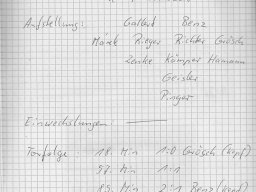 Aufstellung: Gallert Benz
Märek Rieger Richter Grösch
Lenke Kämper Hamann
Geisler
Pinger
Einwechslungen: ———
Torfolge: 18. Min 1:0 Grösch (Kopf)
57. Min 1:1
89. Min 2:1 Benz (Kopf)